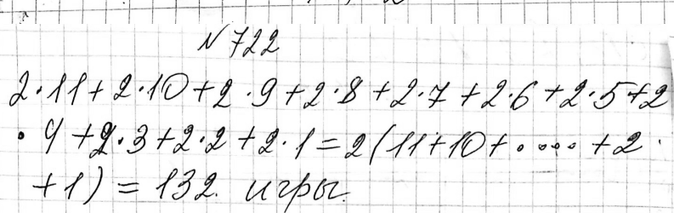 N 722
2·11+2·10+2·9+2·8+2·7+2·6+2·5+2
·4+2·3+2·2+2·1=2(11+10+.....+2
+1)=132. игры.